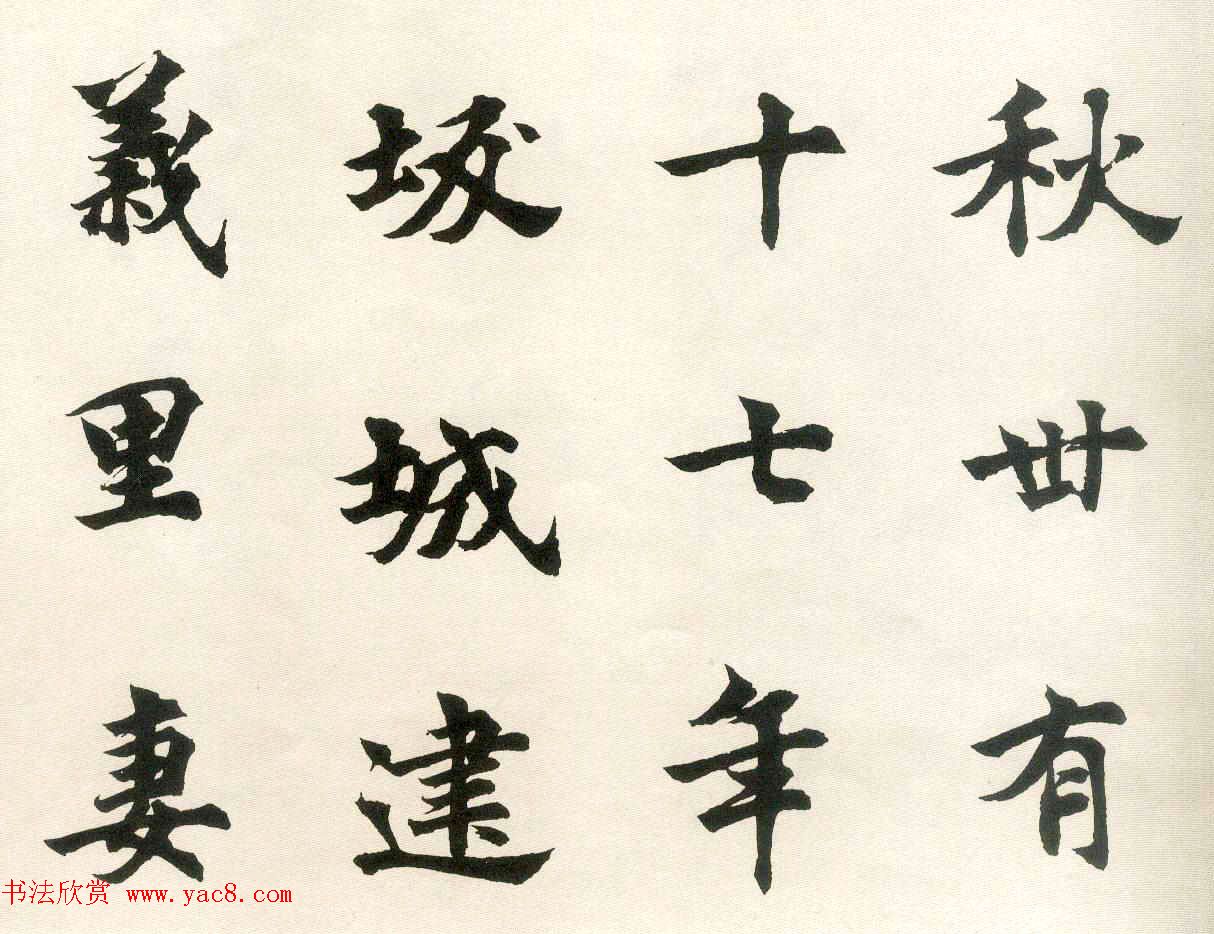 秋丗有
十七年
坺城建
義里妻
书法欣赏 www.yac8.com